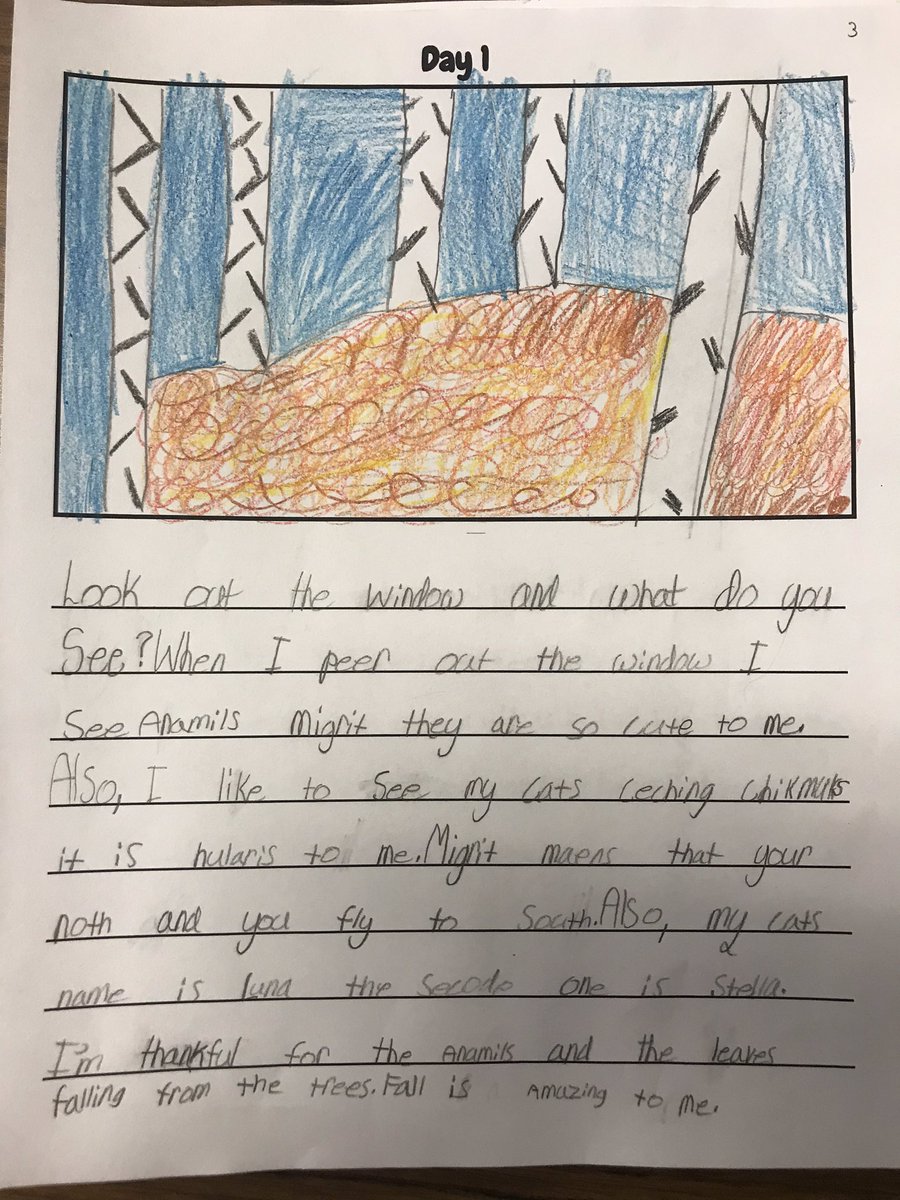 3
Day 1
Look out the window and what do you
See? When I peer out the window I
See Anamils Migrit they are so cute to me.
Also, I like to See my cats ceching chikmuks
it is hularis to me. Migrit maens that your
noth and you fly to South. Also, my cats
name is luna the Secode one is Stella.
I'm thankful for the Anamils and the leaves
falling from the trees. Fall is Amazing to me.